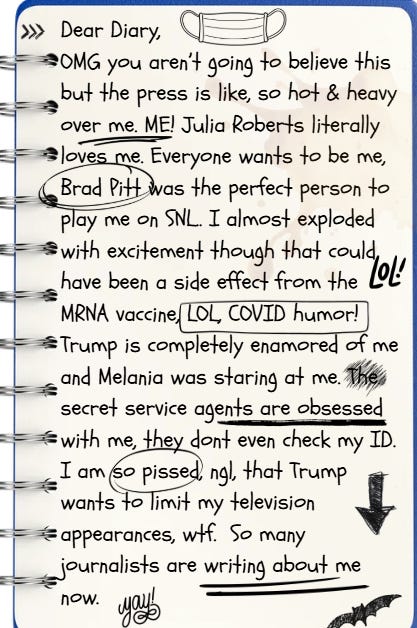 >>> Dear Diary,
OMG you aren't going to believe this
but the press is like, so hot & heavy
over me. ME! Julia Roberts literally
loves me. Everyone wants to be me,
Brad Pitt was the perfect person to
play me on SNL. I almost exploded
with excitement though that could
have been a side effect from the LOL!
MRNA vaccine, LOL, COVID humor!
Trump is completely enamored of me
and Melania was staring at me. The
secret service agents are obsessed
with me, they dont even check my ID.
I am so pissed, ngl, that Trump
wants to limit my television
appearances, wtf. So many
journalists are writing about me
now. yay!